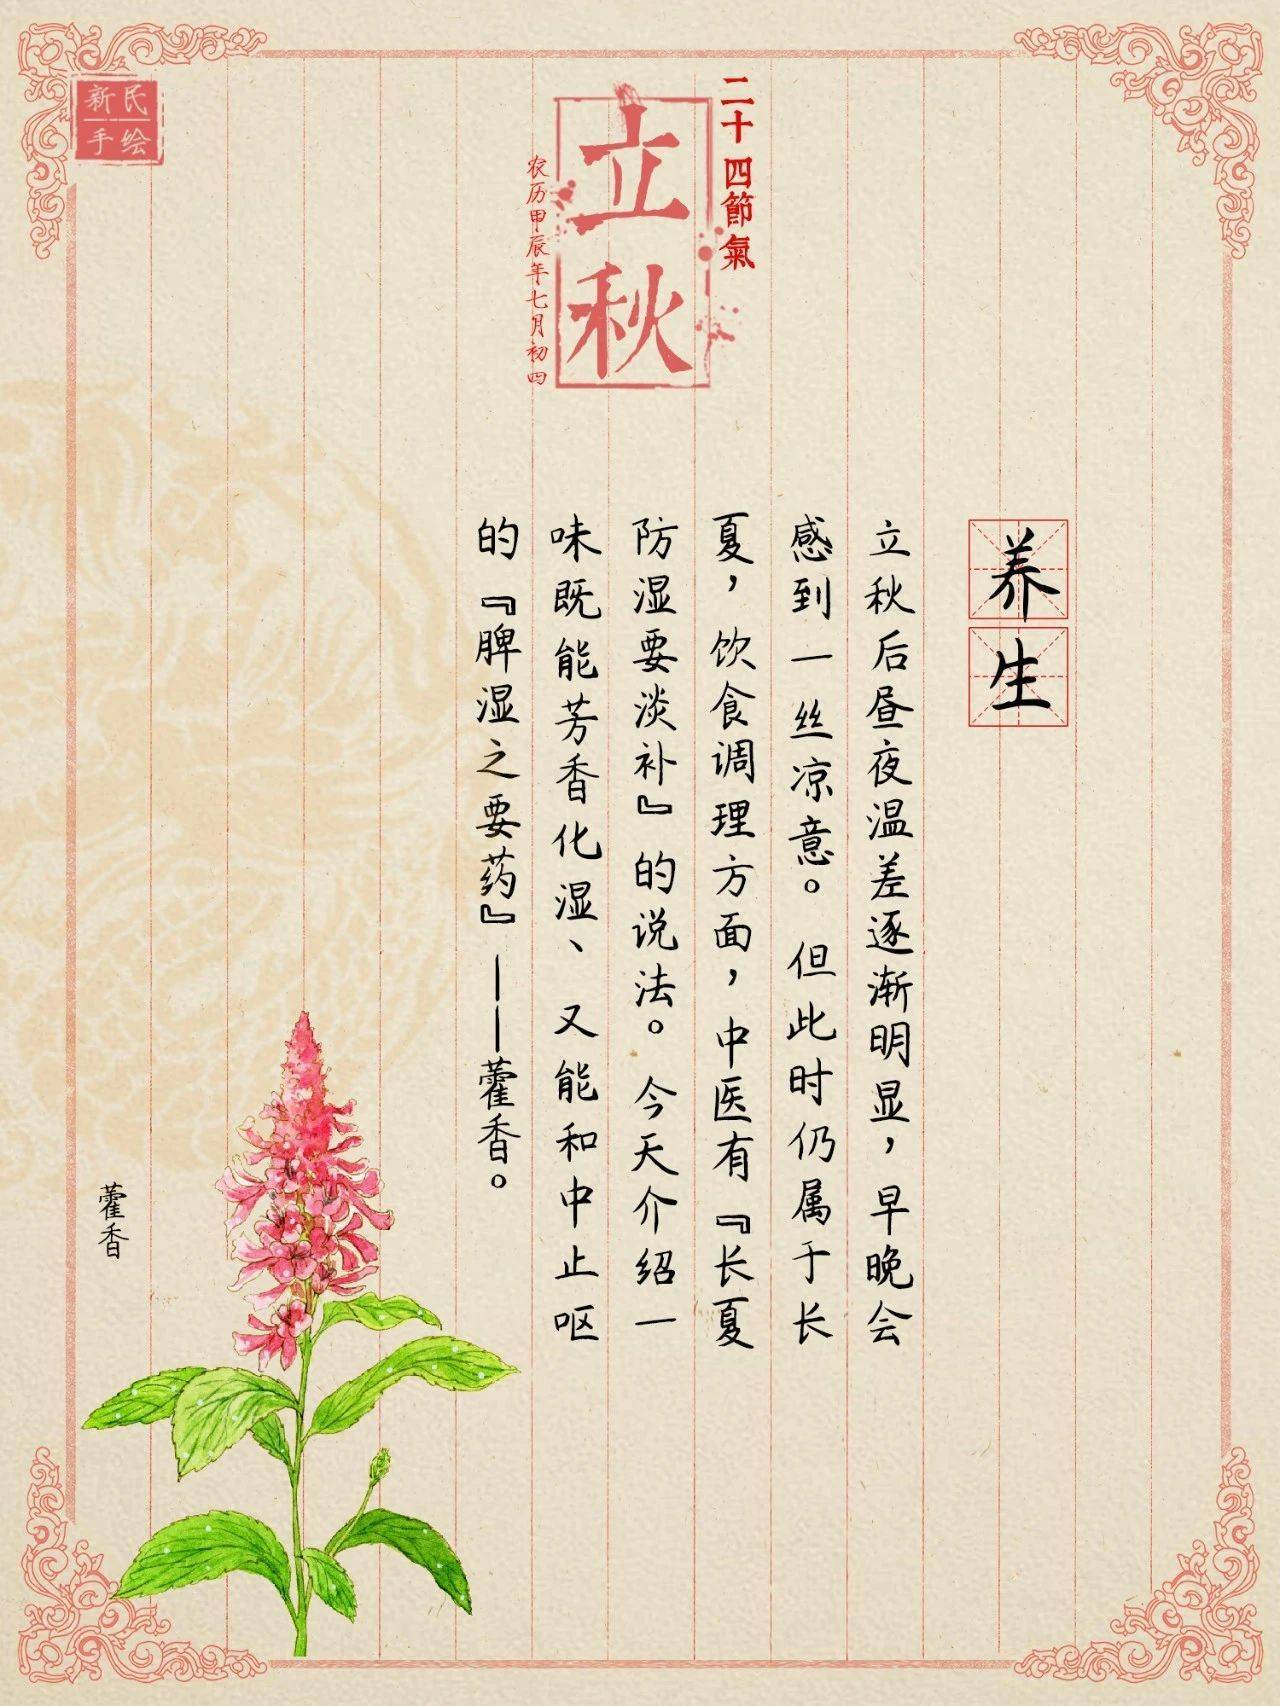 新民
手绘
二十四節氣
立秋
农历甲辰年七月初四
养生
立秋后昼夜温差逐渐明显，早晚会
感到一丝凉意。但此时仍属于长
夏，饮食调理方面，中医有『长夏
防湿要淡补』的说法。今天介绍一
味既能芳香化湿、又能和中止呕
的『脾湿之要药』——藿香。
藿香